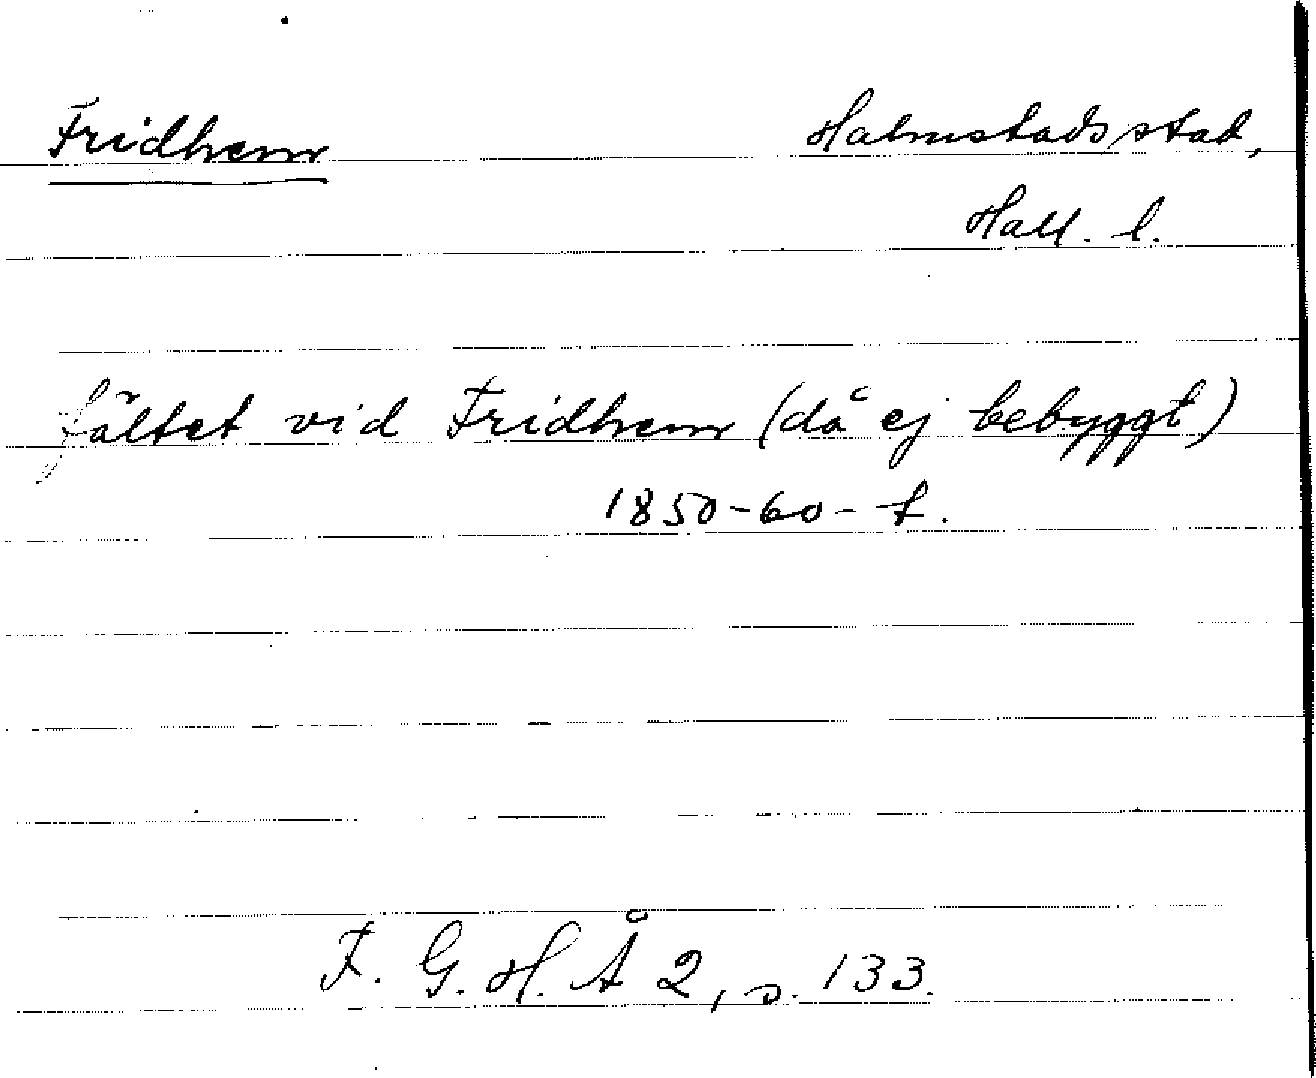 Fridhem
Halmstads stad,
Hall. l.
fältet vid Fridhem (då ej bebyggt)
1850-60-t.
F. G. H. Å 2, s. 133.